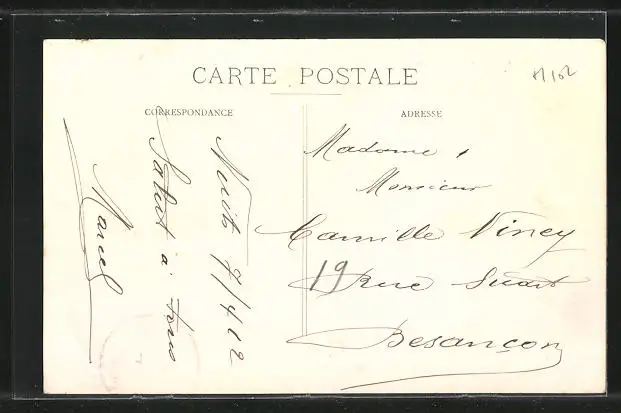 CARTE POSTALE
CORRESPONDANCE
ADRESSE
Nuits 9/4 12
Salut à tous
Marcel
Madame,
Monsieur
Camille Viney
19 Rue Suard
Besançon